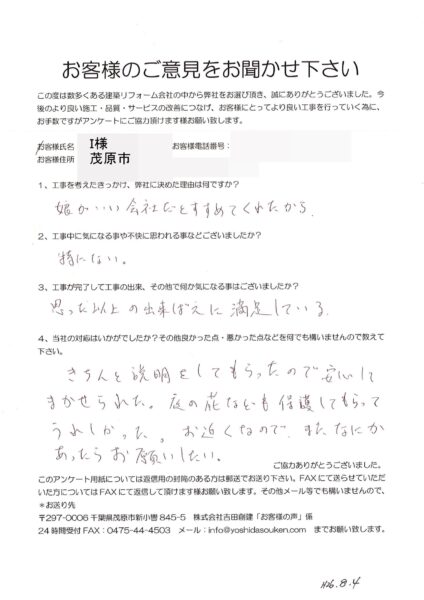 お客様のご意見をお聞かせ下さい
この度は数多くある建築リフォーム会社の中から弊社をお選び頂き、誠にありがとうございました。今
後のより良い施工・品質・サービスの改善につなげ、お客様にとってより良い工事を行っていく為に、
お手数ですがアンケートにご協力頂けます様お願い致します。
お客様氏名 I様 お客様電話番号：
お客様住所 茂原市
1、工事を考えたきっかけ、弊社に決めた理由は何ですか？
娘がいい会社だとすすめてくれたから
2、工事中に気になる事や不快に思われる事などございましたか？
特にない。
3、工事が完了して工事の出来、その他で何か気になる事はございましたか？
思った以上の出来ばえに満足している
4、当社の対応はいかがでしたか？その他良かった点・悪かった点などを何でも構いませんので教えて
下さい。
きちんと説明をしてもらったので安心して
まかせられた。庭の花なども保護してもらって
うれしかった。お近くなので、またなにか
あったらお願いしたい。
ご協力ありがとうございました。
このアンケート用紙については返信用の封筒のある方は郵送でお送り下さい。FAXにて送らせていただ
いた方についてはFAXにて返信して頂けます様お願い致します。その他メール等でも構いませんので、
＊お送り先
〒297-0006 千葉県茂原市新小轡 845-5 株式会社吉田創建「お客様の声」係
24時間受付 FAX：0475-44-4503 メール：info@yoshidasouken.com までお願い致します。
H26.8.4